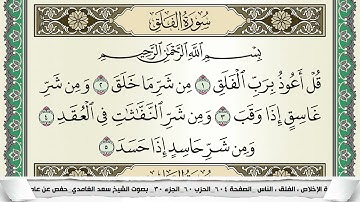 سُورَةُ الفَلَقِ
بِسْمِ اللَّهِ الرَّحْمَٰنِ الرَّحِيمِ
قُلْ أَعُوذُ بِرَبِّ الْفَلَقِ ١ مِن شَرِّ مَا خَلَقَ ٢ وَمِن شَرِّ
غَاسِقٍ إِذَا وَقَبَ ٣ وَمِن شَرِّ النَّفَّاثَاتِ فِي الْعُقَدِ ٤
وَمِن شَرِّ حَاسِدٍ إِذَا حَسَدَ ٥
ة الإخلاص ، الفلق ، الناس . الصفحة ٦٠٤ . الحزب ٦٠ . الجزء ٣٠ . بصوت الشيخ سعد الغامدي . حفص عن عاص